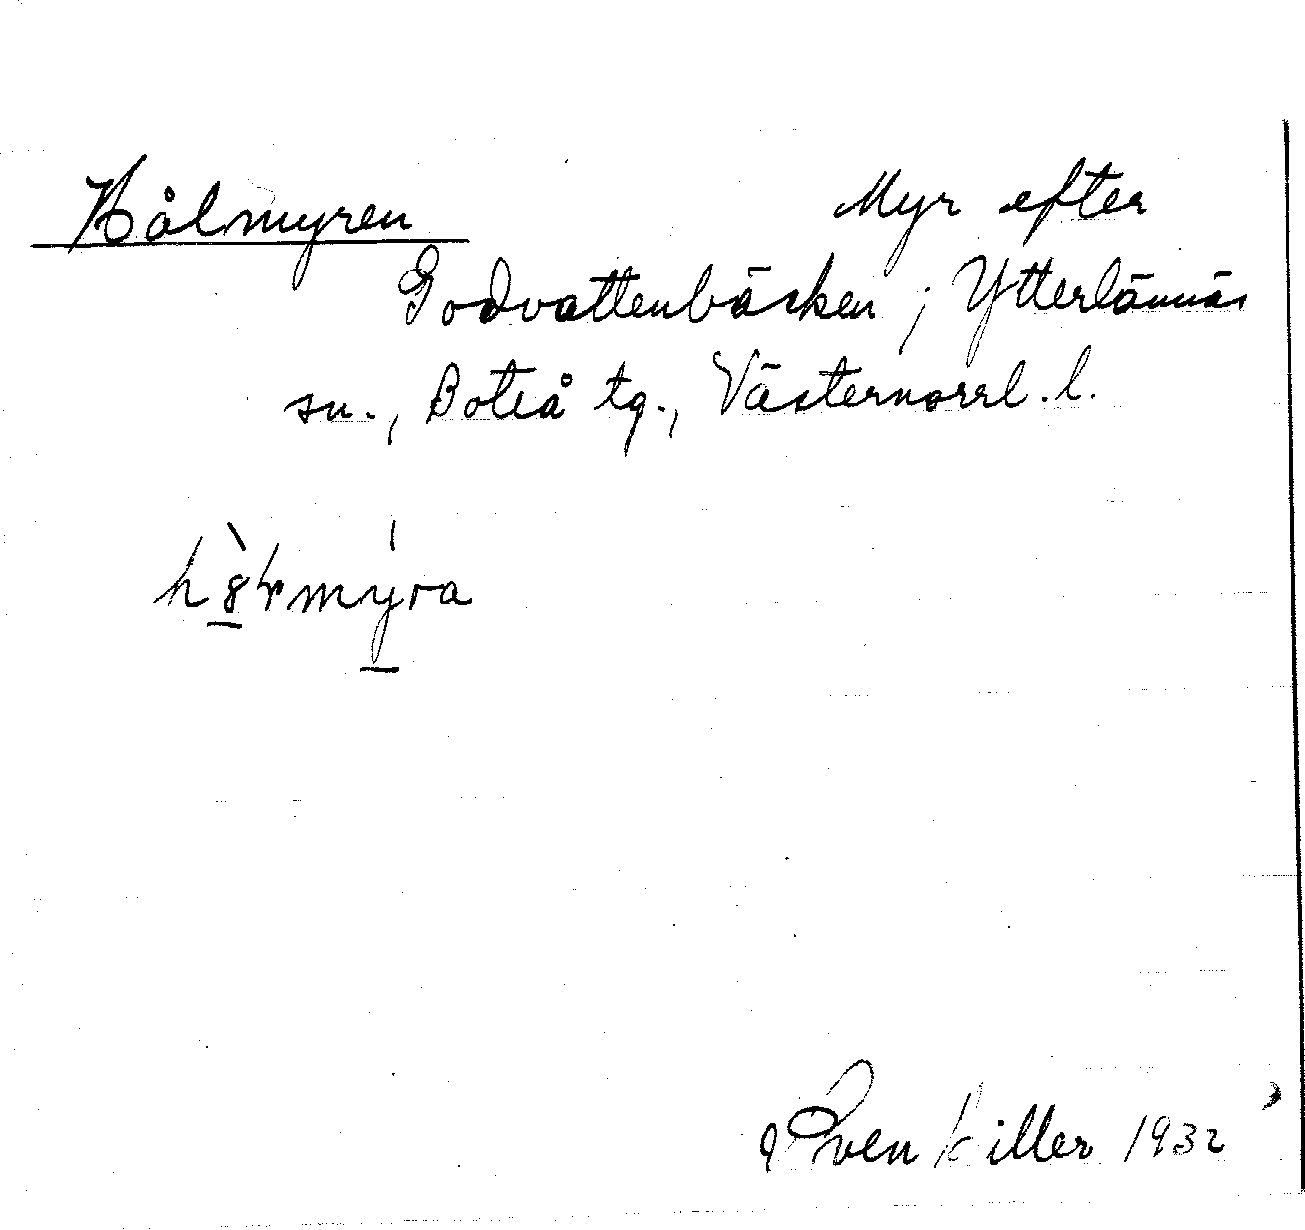 Hålmyren Myr efter
Godvattenbäcken; Ytterlännäs
sn., Boteå tg., Västernorrl. l.
Sven Killer 1932